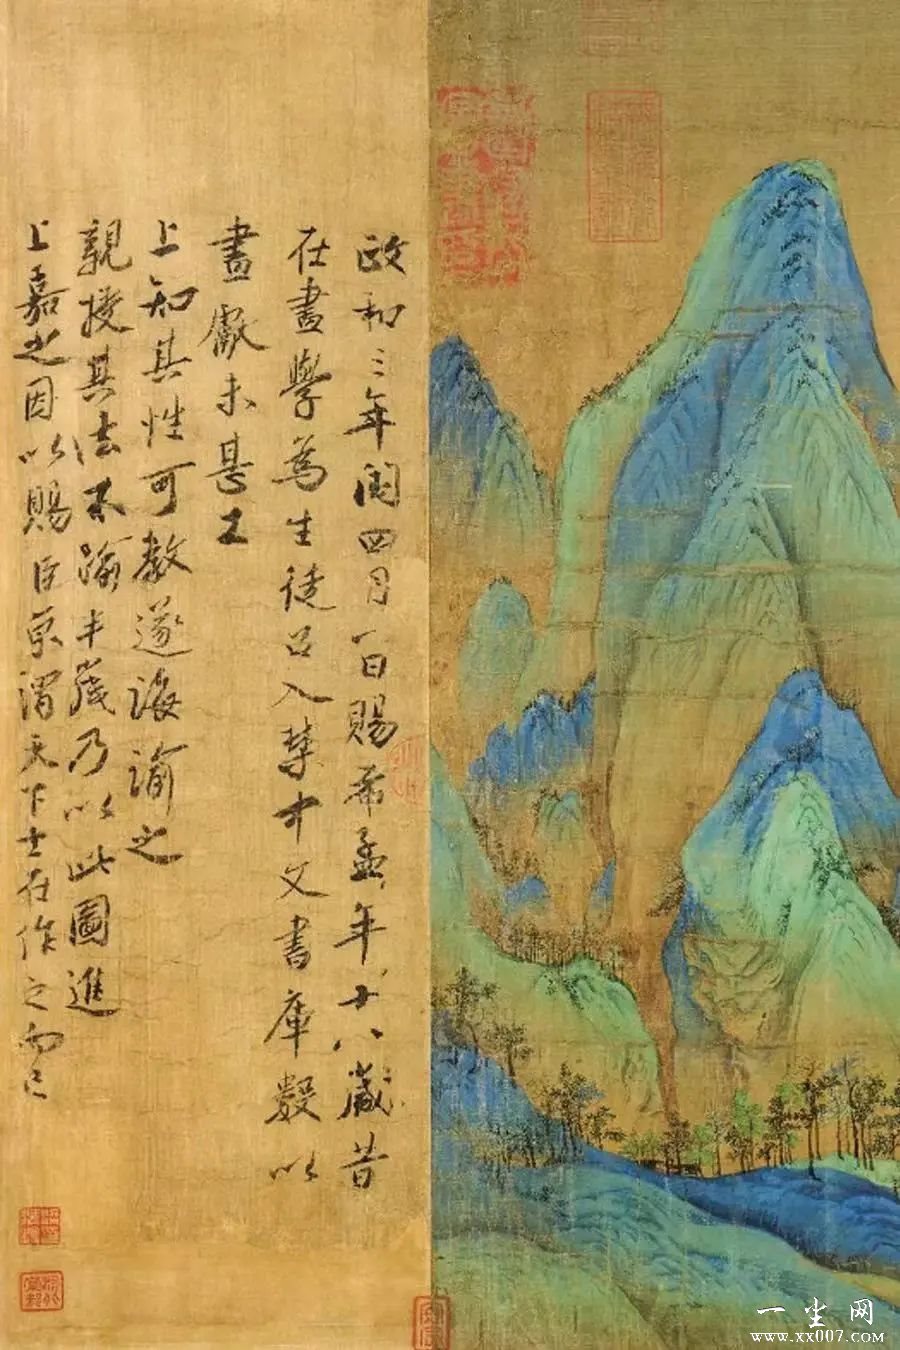 政和三年閏四月一日賜希孟年十八歲昔
在畫學為生徒召入禁中文書庫數以
畫獻未甚工
上知其性可教遂誨諭之
親授其法不踰半歲乃以此圖進
上嘉之因以賜臣京謂天下士在作之而已
一尘网
www.xx007.com